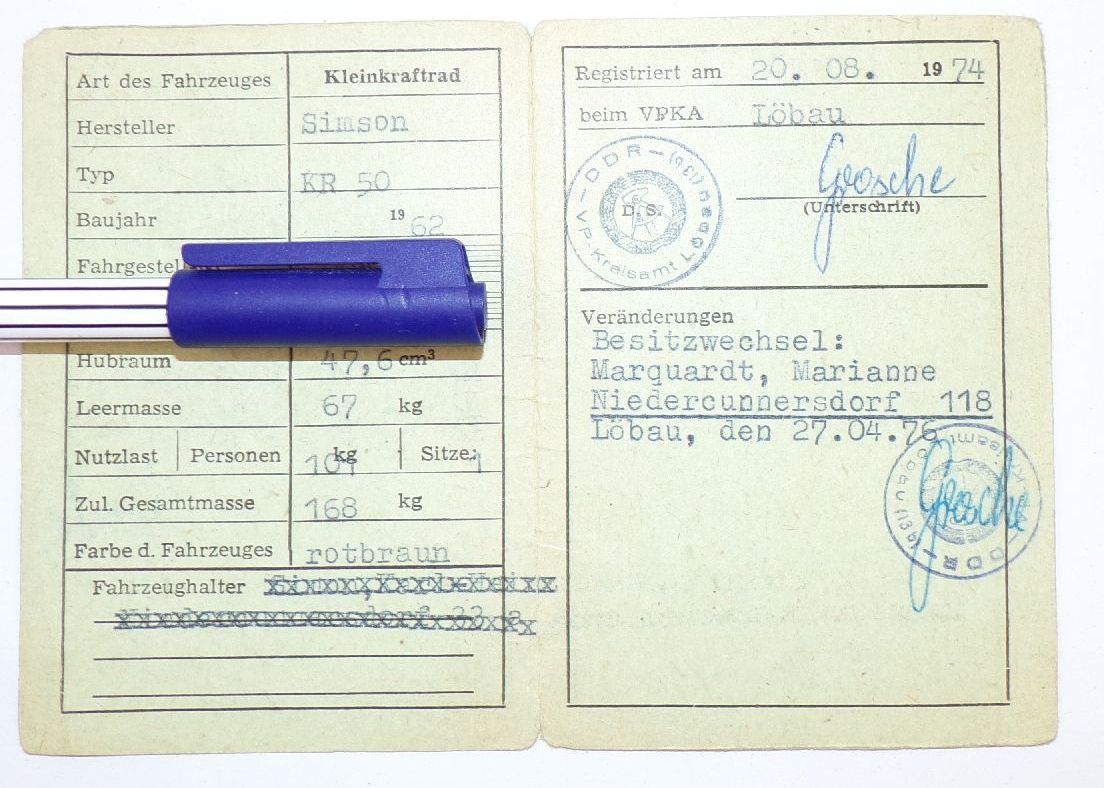 Art des Fahrzeuges Kleinkraftrad
Hersteller Simson
Typ KR 50
Baujahr 19 62
Hubraum 47,6 cm³
Leermasse 67 kg
Nutzlast Personen 101 kg Sitze: 1
Zul. Gesamtmasse 168 kg
Farbe d. Fahrzeuges rotbraun
Fahrzeughalter
Registriert am 20. 08. 1974
beim VPKA Löbau
Grosche
(Unterschrift)
D. S.
Veränderungen
Besitzwechsel:
Marquardt, Marianne
Niedercunnersdorf 118
Löbau, den 27.04.76
Grosche